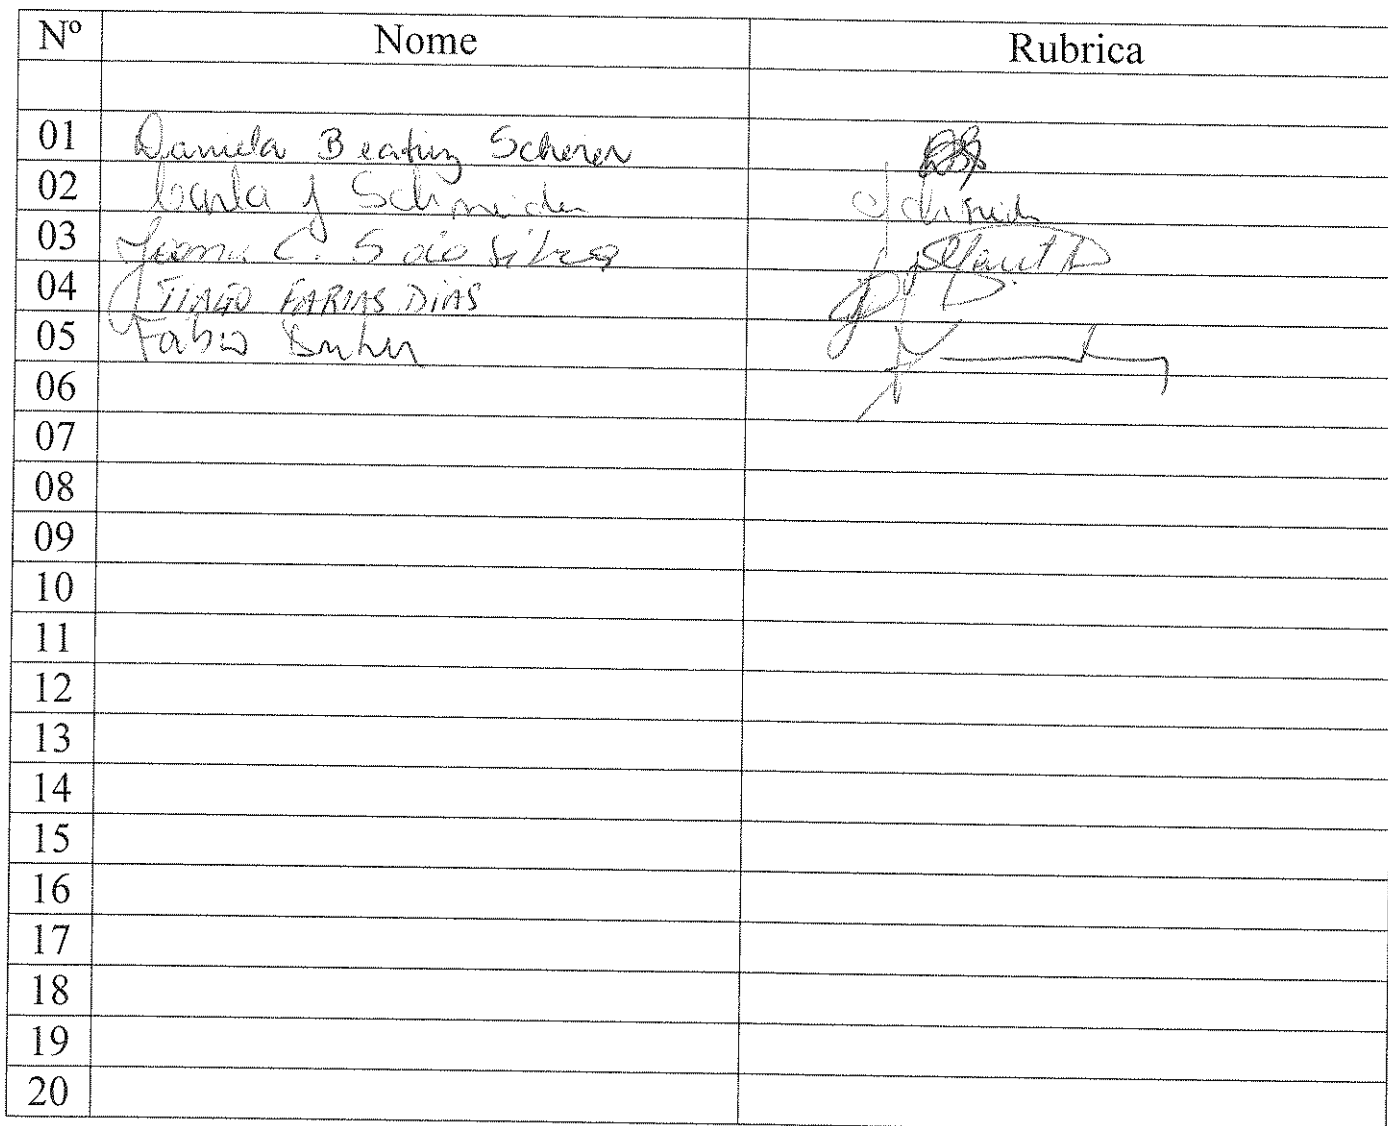 Nº Nome Rubrica
01 Daniela Beatriz Scherer
02 Carla J Schneider
03 C. Silva
04 TIAGO FARIAS DIAS
05 Fabio
06
07
08
09
10
11
12
13
14
15
16
17
18
19
20